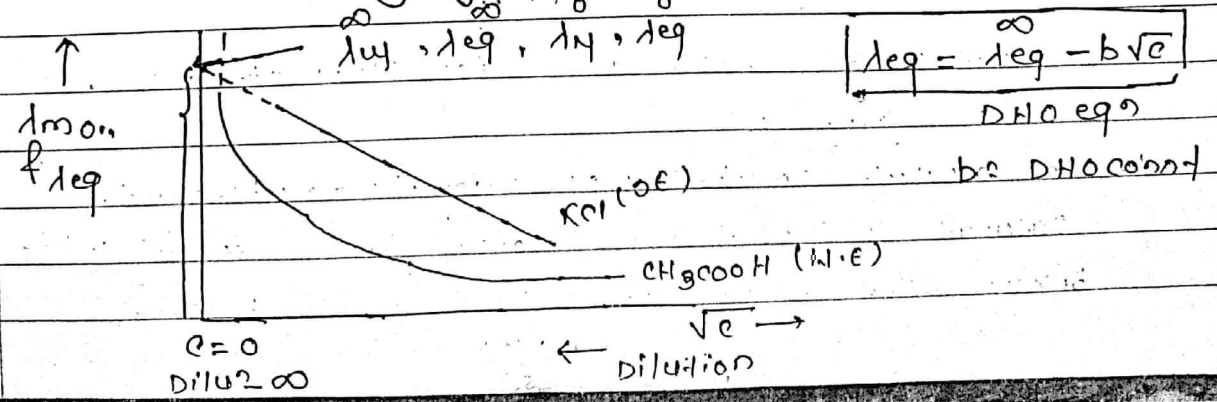 ∞ ∞
λM, λeq, λM, λeq
λeq = λ∞eq - b√c
DHO eqn
b = DHO const
λmon
& λeq
KCl (SE)
CH3COOH (W.E)
√c →
C = 0
← Dilution
Dilu2 ∞